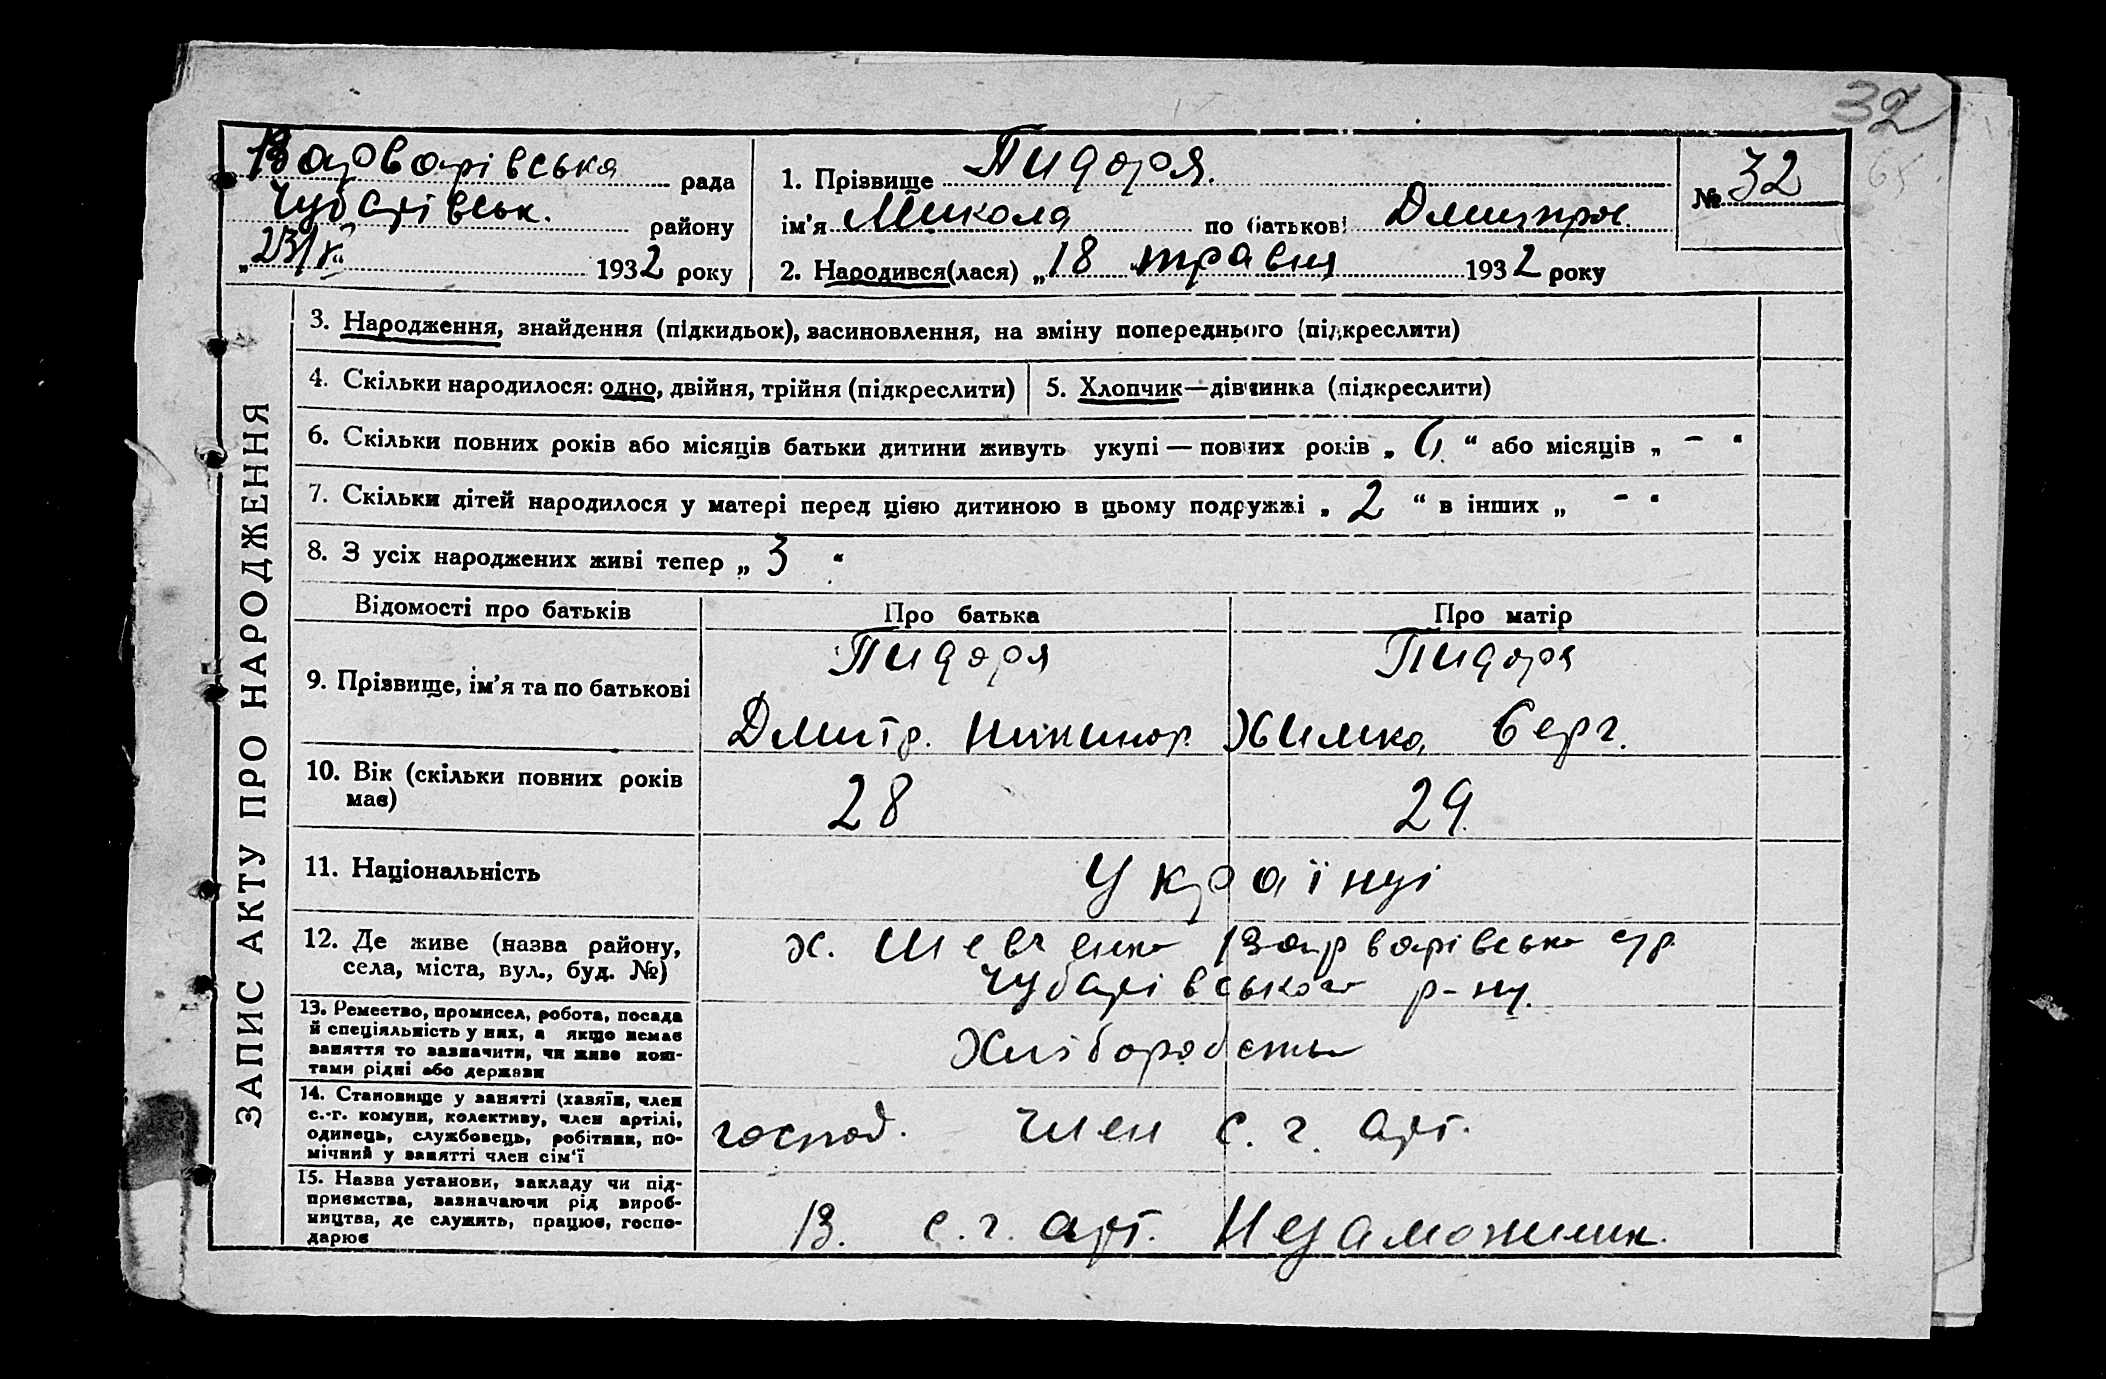 32
65
Варварівська рада
Чубарівськ. району
„23/V“ 1932 року
1. Прізвище Пидоря.
ім'я Микола по батькові Дмитров.
2. Народився(лася) „18 травня 1932 року
№ 32
ЗАПИС АКТУ ПРО НАРОДЖЕННЯ
3. Народження, знайдення (підкидьок), засиновлення, на зміну попереднього (підкреслити)
4. Скільки народилося: одно, двійня, трійня (підкреслити)
5. Хлопчик—дівчинка (підкреслити)
6. Скільки повних років або місяців батьки дитини живуть укупі — повних років „ 6 “ або місяців „ – “
7. Скільки дітей народилося у матері перед цією дитиною в цьому подружжі „ 2 “ в інших „ – “
8. З усіх народжених живі тепер „ 3 “
Відомості про батьків
Про батька
Про матір
9. Прізвище, ім'я та по батькові
Пидоря
Дмитр. Никинор.
Пидоря
Химка Серг.
10. Вік (скільки повних років
має)
28
29.
11. Національність
Українці
12. Де живе (назва району,
села, міста, вул., буд. №)
х. Шевченко Варварівська с/р.
Чубарівського р-ну.
13. Ремество, промисел, робота, посада
й спеціяльність у них, а якщо немає
заняття то зазначити, чи живе кош-
тами рідні або держави
Хліборобство
14. Становище у занятті (хазяїн, член
с.-г. комуни, колективу, член артілі,
одинець, службовець, робітник, по-
мічний у занятті член сім'ї
господ. член с. г. арт.
15. Назва установи, закладу чи під-
приємства, зазначаючи рід вироб-
ництва, де служить, працює, госпо-
дарює
В. с. г. арт. Незаможник.